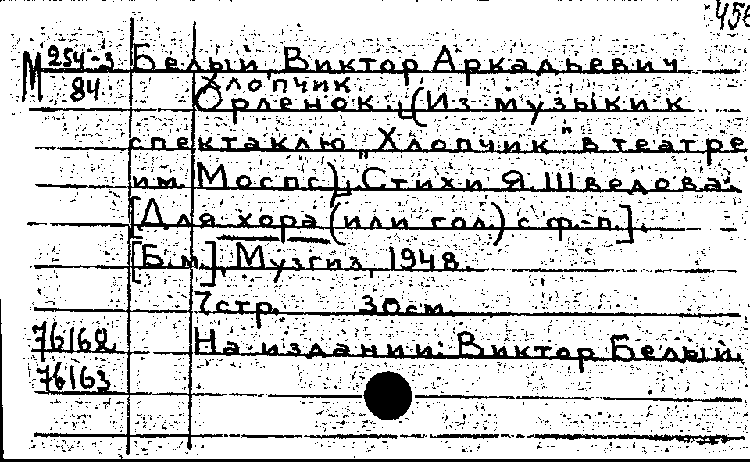 456
М 254-3 Белый, Виктор Аркадьевич
84 Хлопчик
Орленок. (Из музыки к
спектаклю "Хлопчик" в театре
им. Моспс). Стихи Я. Шведова.
[Для хора (или гол.) с ф.-п.].
[Б.м.], Музгиз, 1948.
7 стр. 30 см.
76162 На издании: Виктор Белый.
76163